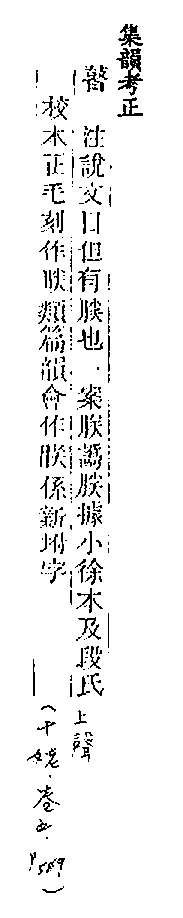 集韻考正
瞽 注說文目但有眹也。案朕譌朕據小徐本及段氏
校本正毛刻作眹類篇韻會作眹係新坿字
上聲
(十姥·卷五·P569)